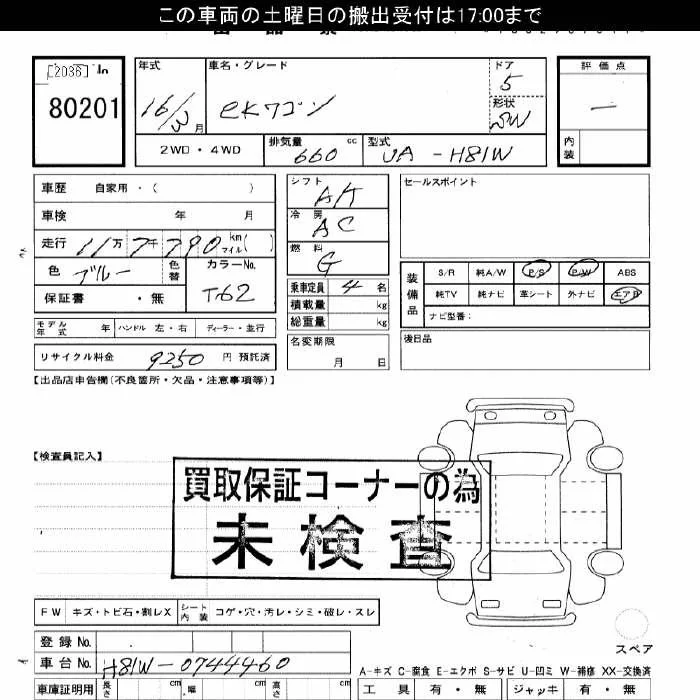 この車両の土曜日の搬出受付は17:00まで
[2036] in
80201
年式 車名・グレード ドア 評価点
16/3月 eKワゴン 5 —
形状 SW
2WD・4WD 排気量 660 cc 型式 UA-H81W 内装
車歴 自家用・( )
シフト AT
セールスポイント
車検 年 月
冷房 AC
走行 11万7千790 km マイル( )
燃料 G
色 ブルー 色替 カラーNo. T62
装備品 S/R 純A/W P/S P/W ABS
乗車定員 4名
純TV 純ナビ 革シート 外ナビ エアB
保証書 ・無
積載量 kg
ナビ型番:
総重量 kg
モデル年式 年 ハンドル 左・右 ディーラー・並行
名変期限
月 日
後日品
リサイクル料金 9250 円 預託済
【出品店申告欄(不良箇所・欠品・注意事項等)】
【検査員記入】
買取保証コーナーの為
未検査
FW キズ・トビ石・割レX シート内張 コゲ・穴・汚レ・シミ・破レ・スレ
スペア
登録 No.
車台 No. H81W-0744460
A-キズ C-腐食 E-エクボ S-サビ U-凹ミ W-補修 XX-交換済
車庫証明用 長さ cm 幅 cm 高さ cm
工具 有・無 ジャッキ 有・無